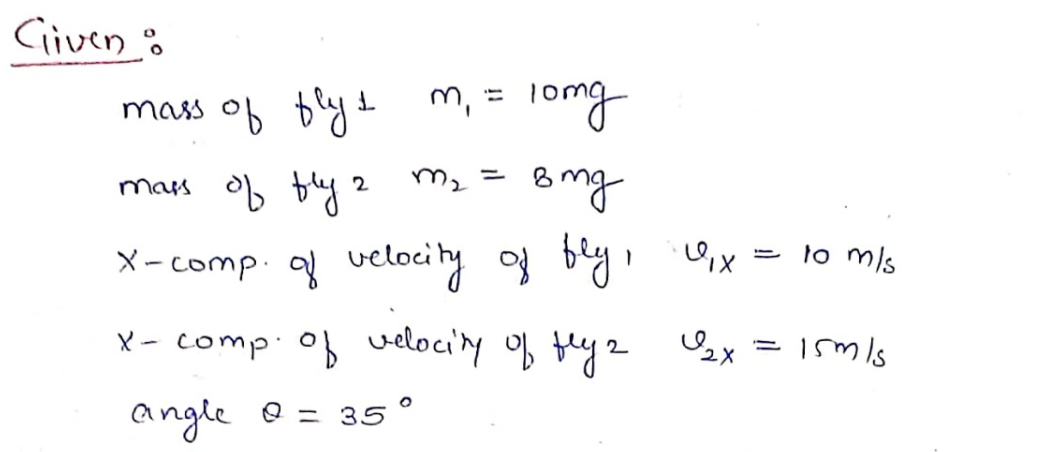 Given :
mass of fly 1 m₁ = 10mg
mass of fly 2 m₂ = 8 mg
X-comp. of velocity of fly 1 v₁ₓ = 10 m/s
X-comp. of velocity of fly 2 v₂ₓ = 15m/s
angle θ = 35°